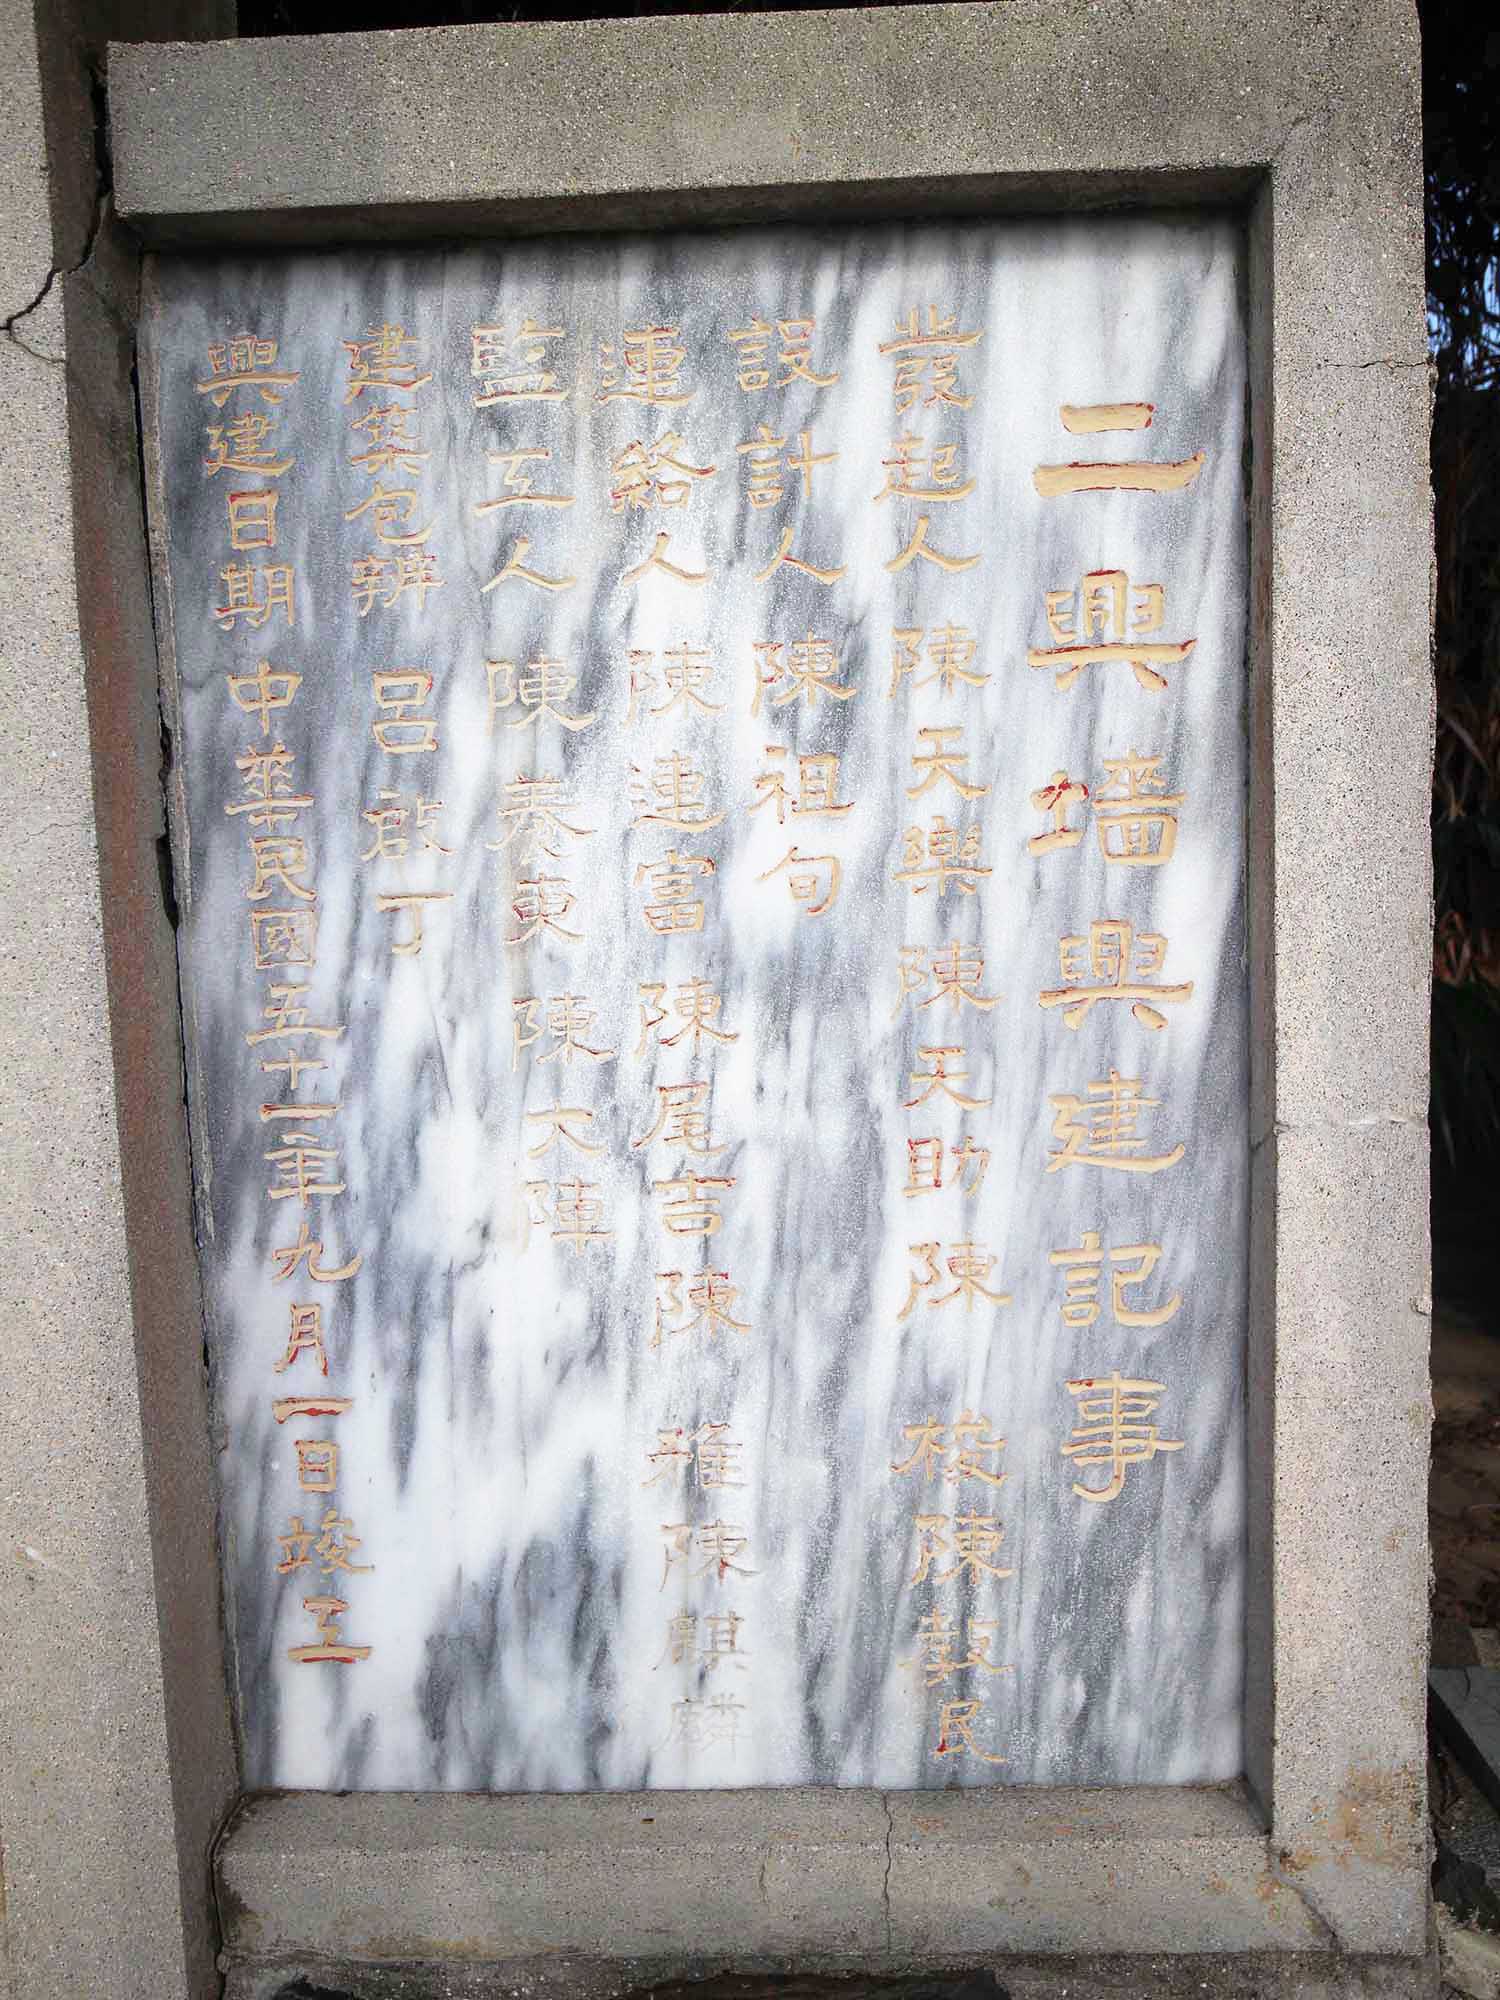 二興墻興建記事
發起人 陳天樂 陳天助 陳 梭 陳毅民
設計人 陳祖旬
連絡人 陳連富 陳尾吉 陳 雅 陳麒麟
監工人 陳養 陳大陣
建築包辦 呂啟丁
興建日期 中華民國五十一年九月一日竣工